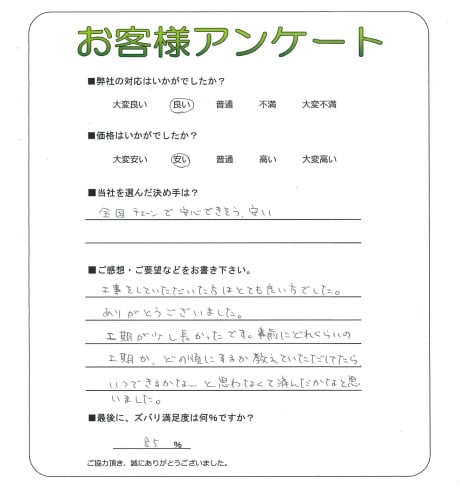 お客様アンケート
■弊社の対応はいかがでしたか？
大変良い 良い 普通 不満 大変不満
■価格はいかがでしたか？
大変安い 安い 普通 高い 大変高い
■当社を選んだ決め手は？
全国チェーンで安心できそう、安い
■ご感想・ご要望などをお書き下さい。
工事をしていただいた方はとても良い方でした。
ありがとうございました。
工期が少し長かったです。事前にどれくらいの
工期か、どの順にするか教えていただけてたら、
いつできるかなーと思わなくて済んだかなと思
いました。
■最後に、ズバリ満足度は何%ですか？
85 %
ご協力頂き、誠にありがとうございました。